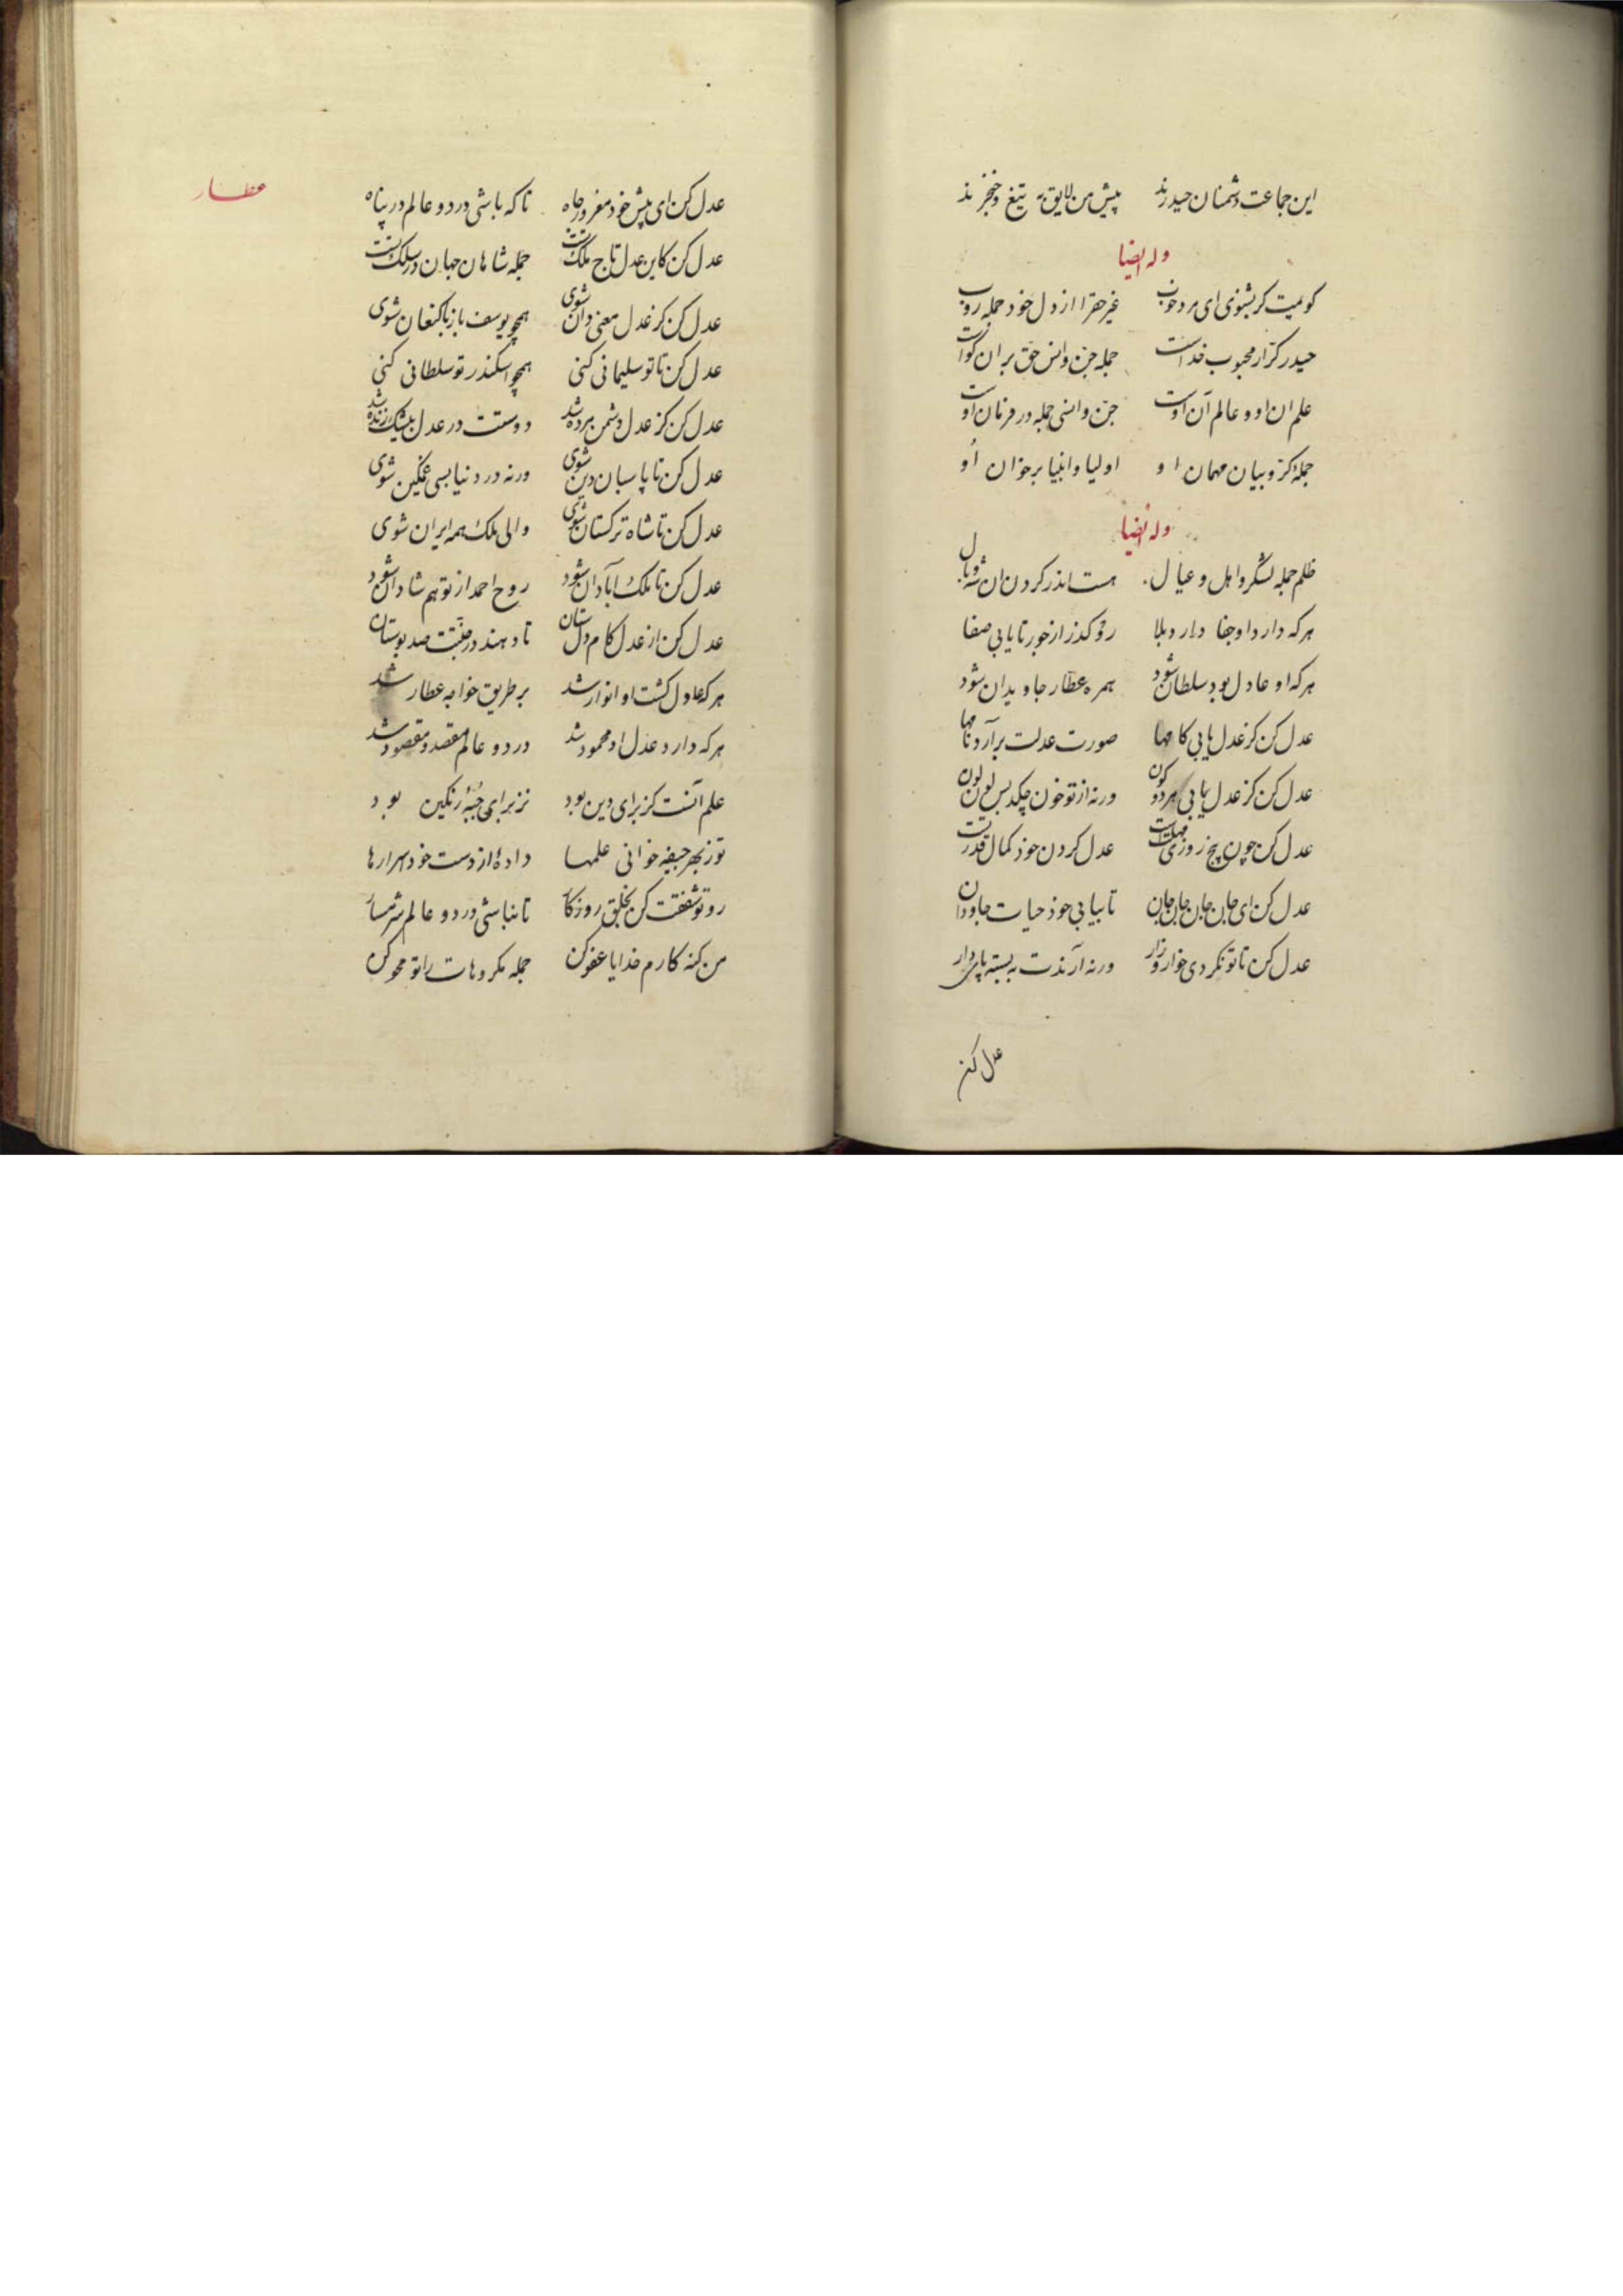 این جماعت دشمنان حیدرند پیش من لایق به تیغ و خنجرند
وله ایضا
کویمت کر بشنوی ای مرد خوب غیر حق را از دل خود جمله روب
حیدر کرّار محبوب خداست جمله جنّ و انس حق بر ان کواست
علم ان او و عالم آن اوست جنّ و انسی جمله در فرمان اوست
جملۀ کرّوبیان مهمان او اولیا و انبیا بر خوان او
وله ایضا
ظلم جمله لشکر و اهل و عیال هست اندر کردن ان شه وبال
هر که دارد او جفا دارد بلا رو کذر از جور تا یابی صفا
هر که او عادل بود سلطان شود همره عطّار جاویدان شود
عدل کن کز عدل یابی کامها صورت عدلت برآرد نامها
عدل کن کز عدل یابی هر دو کون ورنه از تو خون چکد بس لون لون
عدل کن چون پنج روزی مهلتست عدل کردن خود کمال قدرتست
عدل کن ای جان جان جان جان تا بیابی خود حیات جاودان
عدل کن تا تو نکردی خوار و زار ورنه آرندت به بسته پای دار
عدل کن
عطار
عدل کن ای پیش خود مغرور جاه تا که باشی در دو عالم در پناه
عدل کن کاین عدل تاج ملک تست جمله شاهان جهان در سلک تست
عدل کن کز عدل معنی دان شوی همچو یوسف باز با کنعان شوی
عدل کن تا تو سلیمانی کنی همچو اسکندر تو سلطانی کنی
عدل کن کز عدل دشمن مرده شد دوستت در عدل بیشک زنده شد
عدل کن تا پاسبان دین شوی ورنه در دنیا بسی غمکین شوی
عدل کن تا شاه ترکستان شوی والی ملک همه ایران شوی
عدل کن تا ملک آبادان شود روح احمد از تو هم شادان شود
عدل کن از عدل کام دل ستان تا دهندت در جنّت صد بوستان
هر که عادل کشت او انوار شد بر طریق خواجه عطار شد
هر که دارد عدل او محمود شد در دو عالم مقصد و مقصود شد
علم آنست کز برای دین بود نز برای جبّۀ رنکین بود
تو ز بهر جیفه خوانی علمها دادۀ از دست خود اسرارها
رو تو شفقت کن بخلق روزکار تا نباشی در دو عالم شرمسار
من کنه کارم خدایا عفو کن جمله مکروهات را تو محو کن